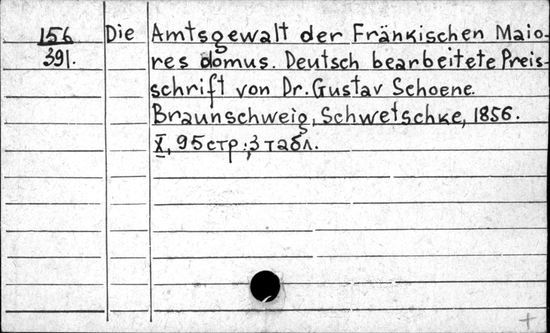 156 Die Amtsgewalt der Fränkischen Maio-
391. res domus. Deutsch bearbeitete Preis-
schrift von Dr. Gustav Schoene.
Braunschweig, Schwetschke, 1856.
X, 95 стр.; 3 табл.